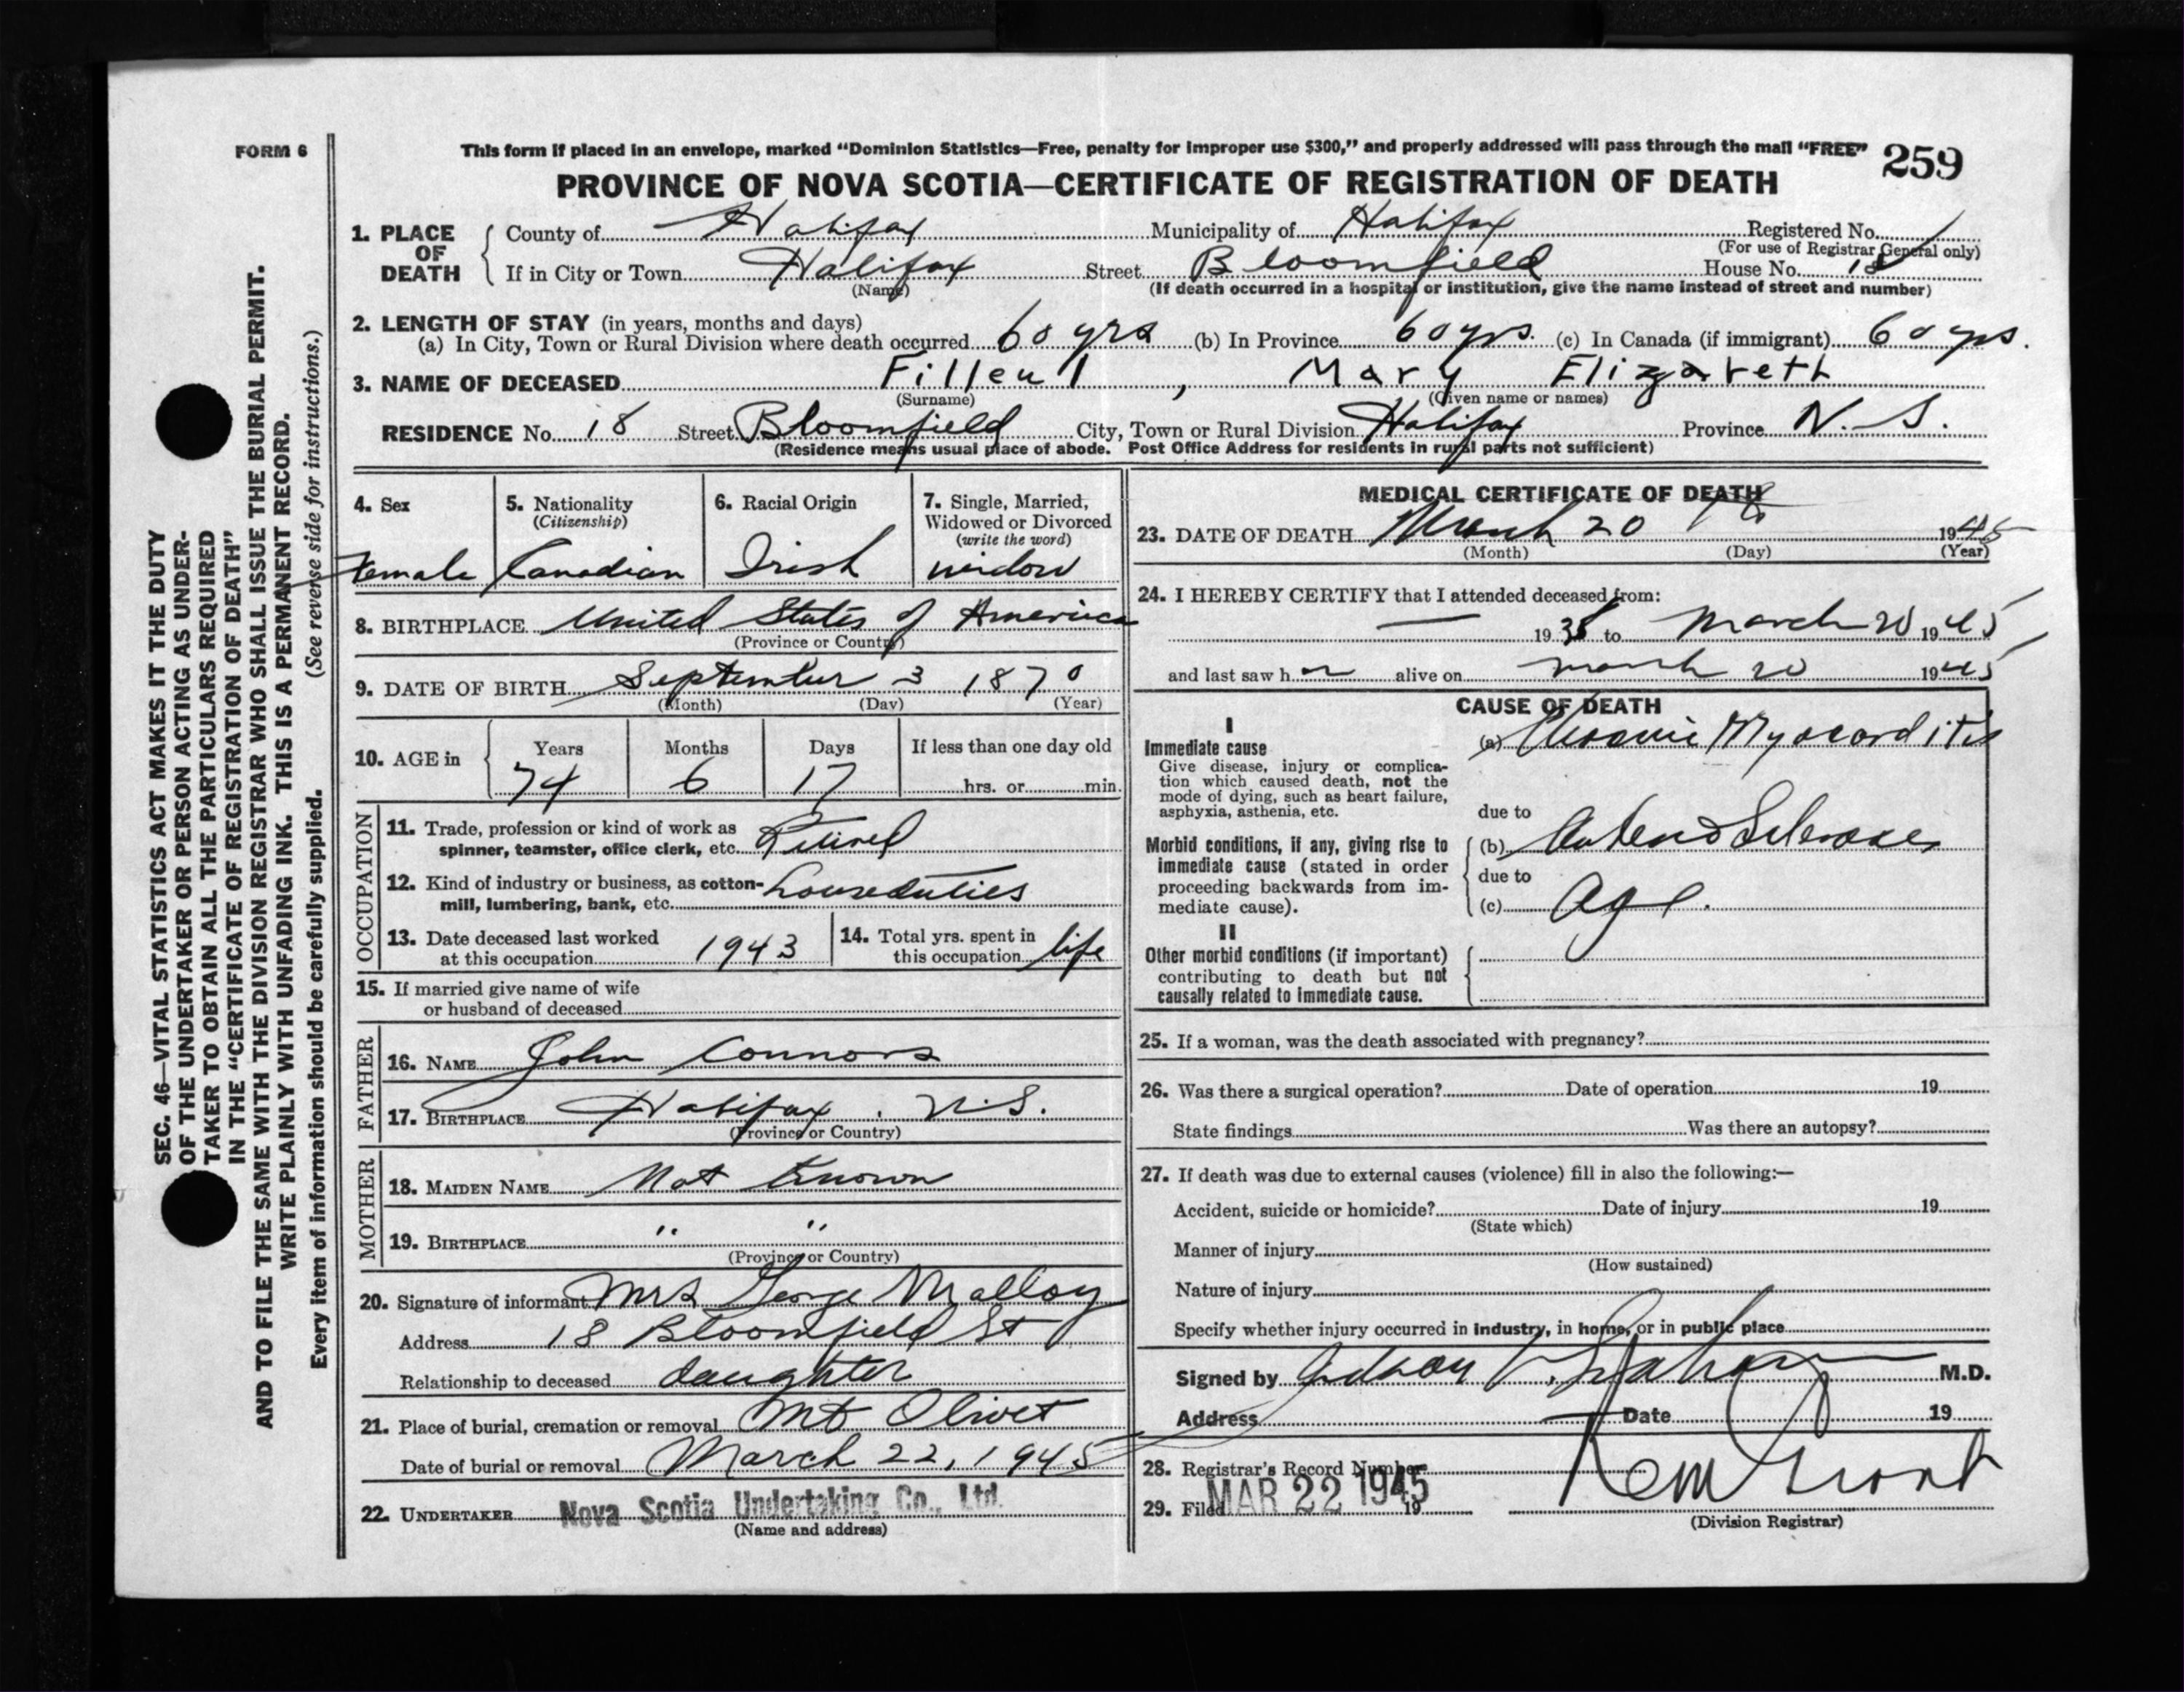 FORM 6
This form if placed in an envelope, marked “Dominion Statistics—Free, penalty for improper use $300,” and properly addressed will pass through the mail “FREE”
259
PROVINCE OF NOVA SCOTIA—CERTIFICATE OF REGISTRATION OF DEATH
1. PLACE OF DEATH
County of Halifax Municipality of Halifax Registered No.
(For use of Registrar General only)
If in City or Town Halifax Street Bloomfield House No. 18
(Name) (If death occurred in a hospital or institution, give the name instead of street and number)
2. LENGTH OF STAY (in years, months and days)
(a) In City, Town or Rural Division where death occurred 60 yrs (b) In Province 60 yrs. (c) In Canada (if immigrant) 60 yrs.
3. NAME OF DECEASED Filleul, Mary Elizabeth
(Surname) (Given name or names)
RESIDENCE No. 18 Street Bloomfield City, Town or Rural Division Halifax Province N.S.
(Residence means usual place of abode. Post Office Address for residents in rural parts not sufficient)
4. Sex
Female
5. Nationality
(Citizenship)
Canadian
6. Racial Origin
Irish
7. Single, Married,
Widowed or Divorced
(write the word)
widow
8. BIRTHPLACE United States of America
(Province or Country)
9. DATE OF BIRTH September 3 1870
(Month) (Day) (Year)
10. AGE in
Years Months Days If less than one day old
74 6 17 hrs. or min.
OCCUPATION
11. Trade, profession or kind of work as
spinner, teamster, office clerk, etc. Retired
12. Kind of industry or business, as cotton-
mill, lumbering, bank, etc. houseduties
13. Date deceased last worked
at this occupation 1943
14. Total yrs. spent in
this occupation life
15. If married give name of wife
or husband of deceased
FATHER
16. NAME John Connors
17. BIRTHPLACE Halifax, N.S.
(Province or Country)
MOTHER
18. MAIDEN NAME Not Known
19. BIRTHPLACE " "
(Province or Country)
20. Signature of informant Mrs George Malloy
Address 18 Bloomfield St
Relationship to deceased daughter
21. Place of burial, cremation or removal Mt Olivet
Date of burial or removal March 22, 1945
22. UNDERTAKER Nova Scotia Undertaking Co., Ltd.
(Name and address)
MEDICAL CERTIFICATE OF DEATH
23. DATE OF DEATH March 20 1945
(Month) (Day) (Year)
24. I HEREBY CERTIFY that I attended deceased from:
— 1938 to March 20 1945
and last saw her alive on March 20 1945
CAUSE OF DEATH
I
Immediate cause
Give disease, injury or complica-
tion which caused death, not the
mode of dying, such as heart failure,
asphyxia, asthenia, etc.
(a) Chronic Myocarditis
due to
Morbid conditions, if any, giving rise to
immediate cause (stated in order
proceeding backwards from im-
mediate cause).
(b) Arterio Sclerosis
due to
(c) Age.
II
Other morbid conditions (if important)
contributing to death but not
causally related to immediate cause.
25. If a woman, was the death associated with pregnancy?
26. Was there a surgical operation? Date of operation 19
State findings Was there an autopsy?
27. If death was due to external causes (violence) fill in also the following:—
Accident, suicide or homicide? Date of injury 19
(State which)
Manner of injury
(How sustained)
Nature of injury
Specify whether injury occurred in industry, in home, or in public place
Signed by Judson V. Graham M.D.
Address Date 19
28. Registrar's Record Number
29. Filed MAR 22 1945 19
(Division Registrar)
SEC. 46—VITAL STATISTICS ACT MAKES IT THE DUTY
OF THE UNDERTAKER OR PERSON ACTING AS UNDER-
TAKER TO OBTAIN ALL THE PARTICULARS REQUIRED
IN THE “CERTIFICATE OF REGISTRATION OF DEATH”
AND TO FILE THE SAME WITH THE DIVISION REGISTRAR WHO SHALL ISSUE THE BURIAL PERMIT.
WRITE PLAINLY WITH UNFADING INK. THIS IS A PERMANENT RECORD.
Every item of information should be carefully supplied. (See reverse side for instructions.)